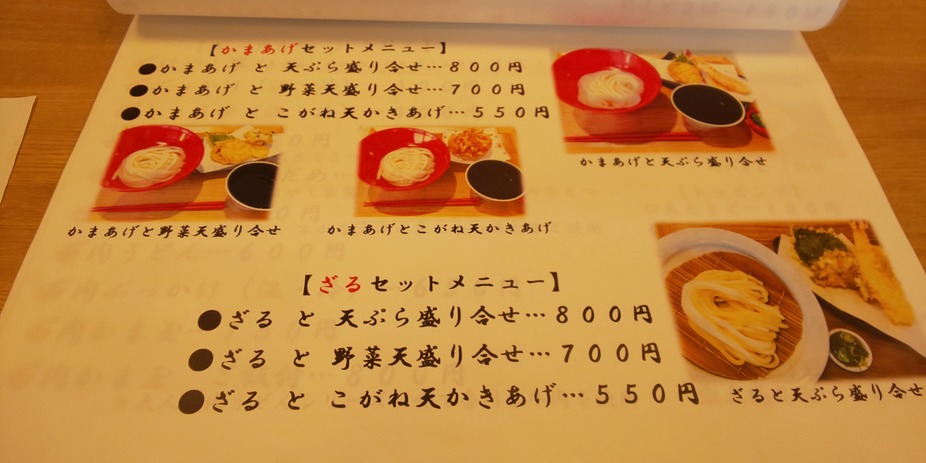 【かまあげセットメニュー】
●かまあげ と 天ぷら盛り合せ…８００円
●かまあげ と 野菜天盛り合せ…７００円
●かまあげ と こがね天かきあげ…５５０円
かまあげと天ぷら盛り合せ
かまあげと野菜天盛り合せ
かまあげとこがね天かきあげ
【ざるセットメニュー】
●ざる と 天ぷら盛り合せ…８００円
●ざる と 野菜天盛り合せ…７００円
●ざる と こがね天かきあげ…５５０円
ざると天ぷら盛り合せ